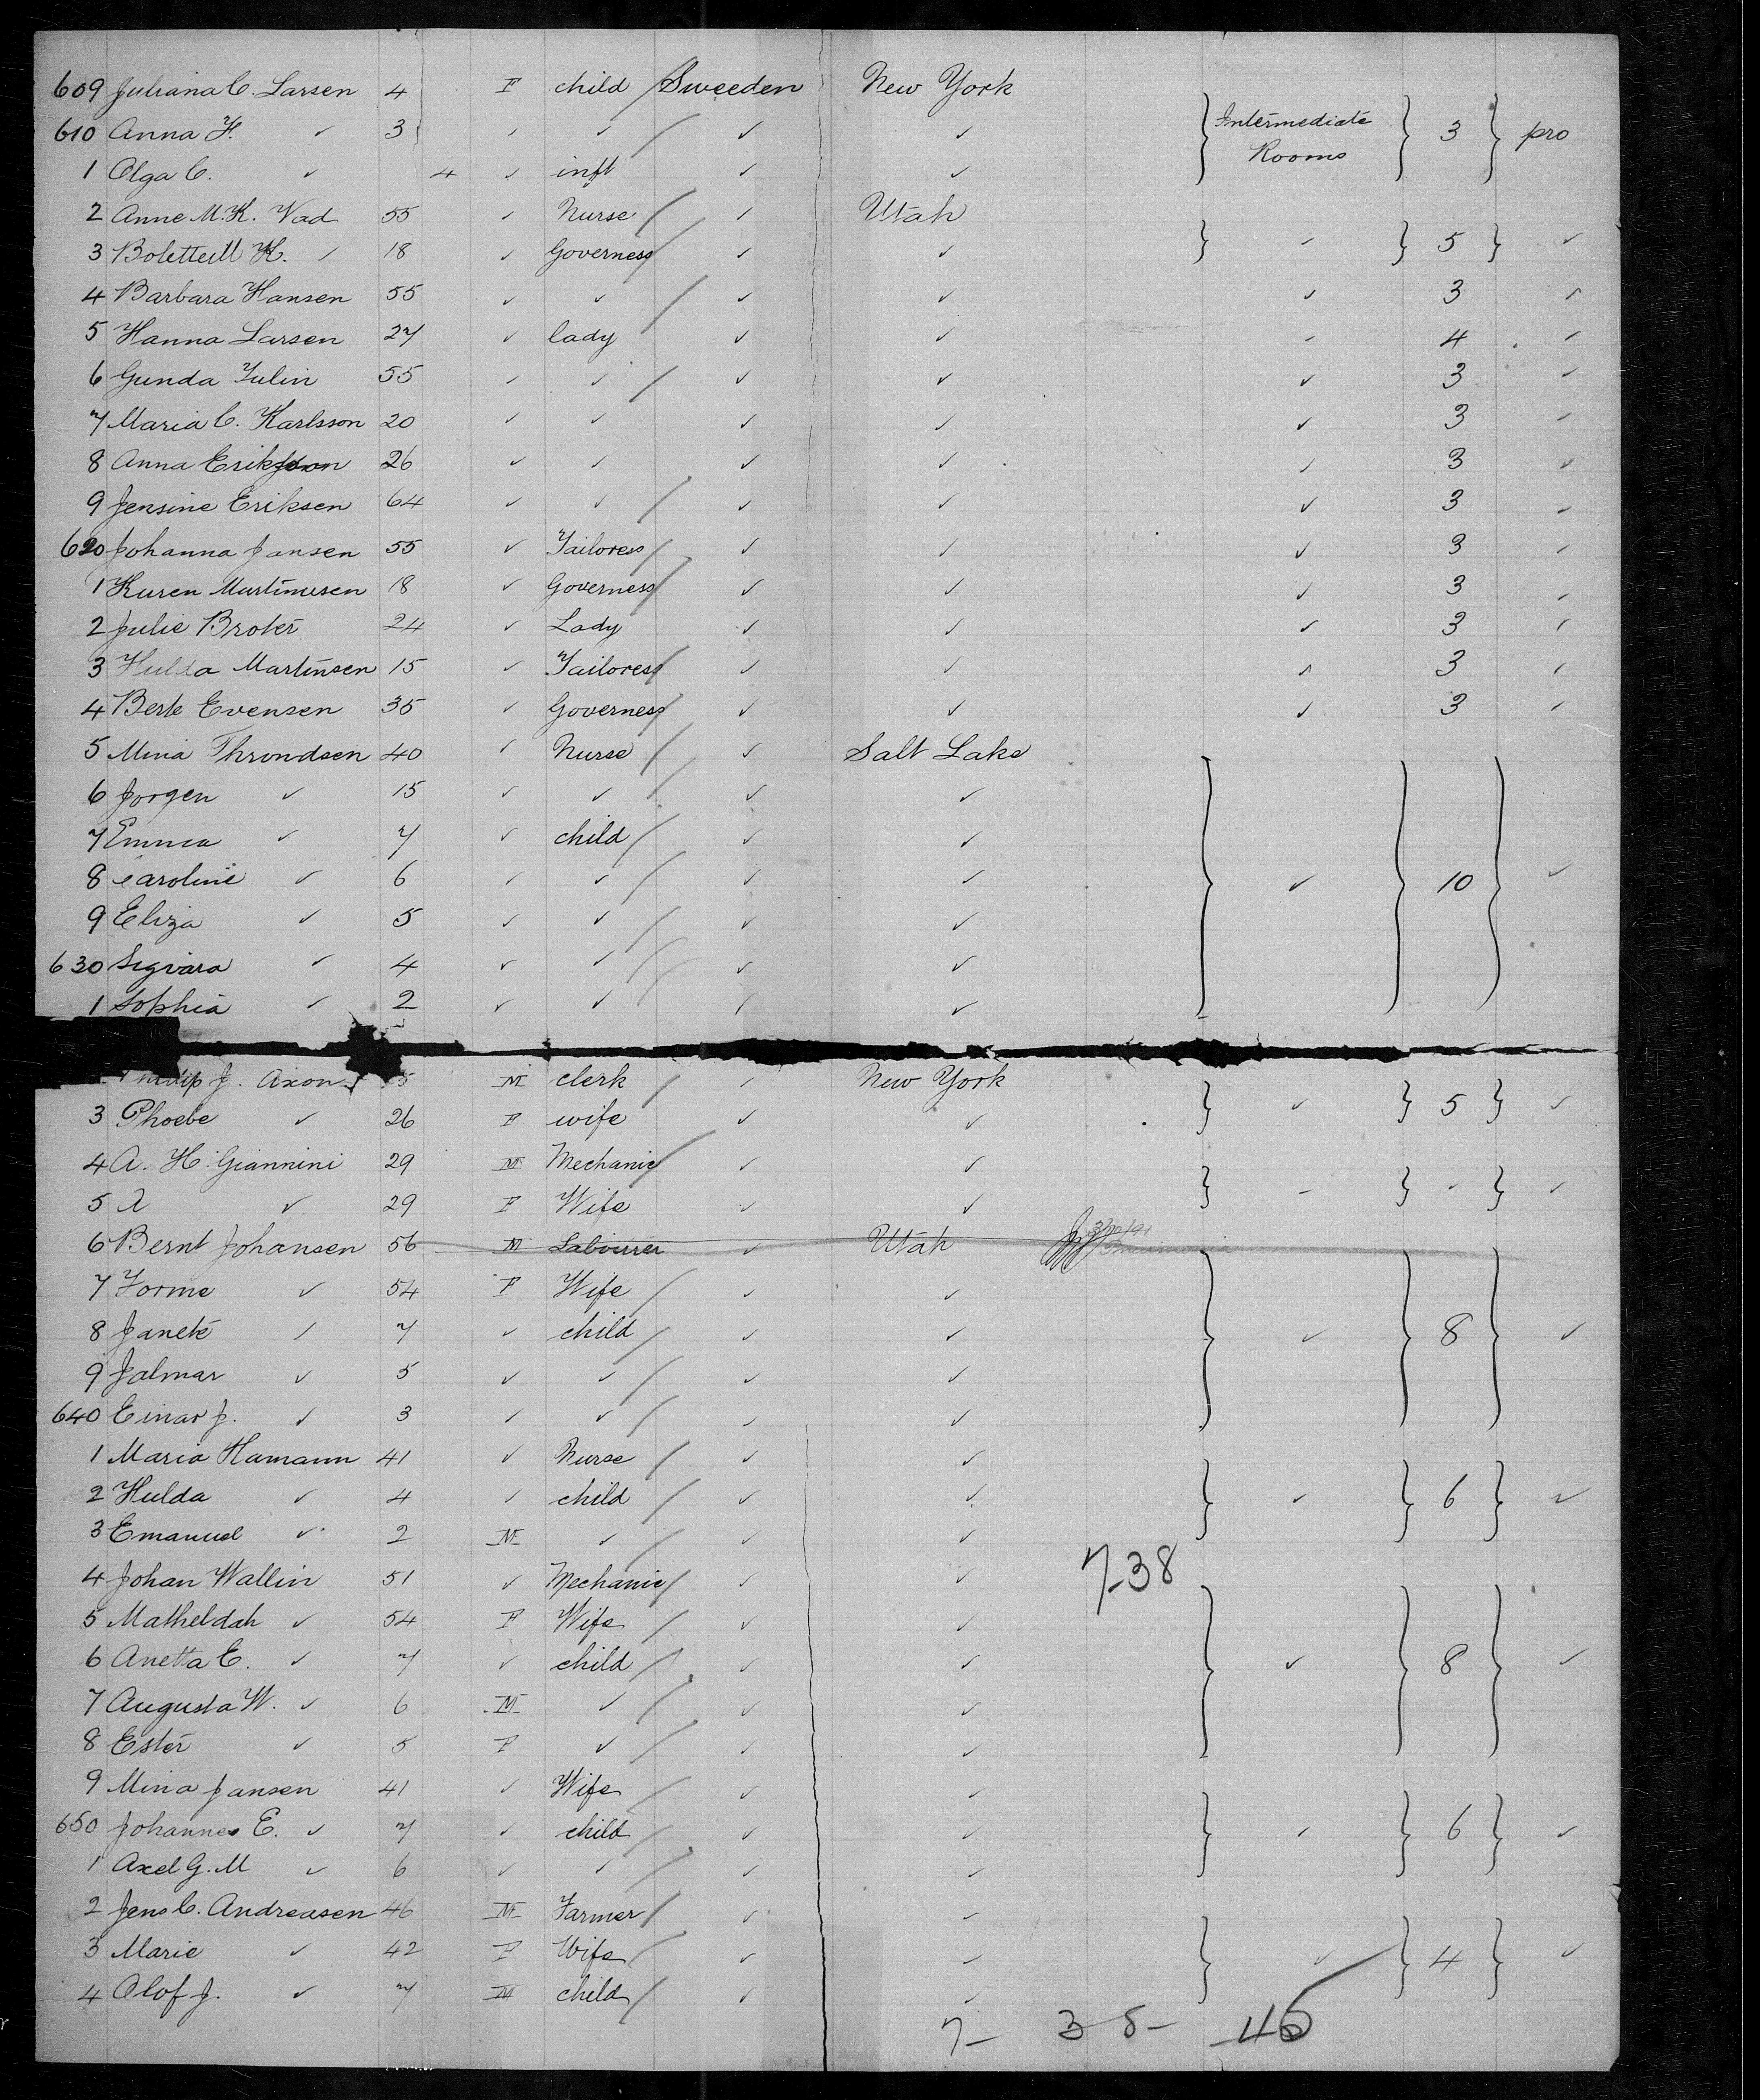 609 Juliana C. Larsen 4 F child Sweeden New York
610 Anna H. ✓ 3 ✓ ✓ ✓ ✓ Intermediate Rooms 3 pro
1 Olga C. ✓ 4 ✓ inft ✓ ✓
2 Anne M.K. Vad 55 ✓ Nurse ✓ Utah
3 K. ✓ 18 ✓ Governess ✓ ✓ ✓ 5 ✓
4 Barbara Hansen 55 ✓ ✓ ✓ ✓ ✓ 3 ✓
5 Hanna Larsen 27 ✓ lady ✓ ✓ ✓ 4 ✓
6 Gunda Julin 55 ✓ ✓ ✓ ✓ ✓ 3 ✓
7 Maria C. Karlsson 20 ✓ ✓ ✓ ✓ ✓ 3 ✓
8 Anna Eriksson 26 ✓ ✓ ✓ ✓ ✓ 3 ✓
9 Jensine Eriksen 64 ✓ ✓ ✓ ✓ ✓ 3 ✓
620 Johanna Jansen 55 ✓ Tailoress ✓ ✓ ✓ 3 ✓
1 Karen Martinusen 18 ✓ Governess ✓ ✓ ✓ 3 ✓
2 Julie Broter 24 ✓ Lady ✓ ✓ ✓ 3 ✓
3 Hulda Martinsen 15 ✓ Tailoress ✓ ✓ ✓ 3 ✓
4 Berte Evensen 35 ✓ Governess ✓ ✓ ✓ 3 ✓
5 Mina Throndsen 40 ✓ Nurse ✓ Salt Lake
6 Jorgen ✓ 15 ✓ ✓ ✓ ✓
7 Emma ✓ 7 ✓ child ✓ ✓
8 Caroline ✓ 6 ✓ ✓ ✓ ✓ ✓ 10 ✓
9 Eliza ✓ 5 ✓ ✓ ✓ ✓
630 Sigvara ✓ 4 ✓ ✓ ✓ ✓
1 Sophia ✓ 2 ✓ ✓ ✓ ✓
J. Axon M clerk ✓ New York
3 Phoebe ✓ 26 F wife ✓ ✓ ✓ 5 ✓
4 A. H. Giannini 29 M Mechanic ✓ ✓
5 ✓ 29 F Wife ✓ ✓ ✓ ✓ ✓
6 Bernt Johansen 56 M Labourer ✓ Utah
7 Torme ✓ 54 F Wife ✓ ✓
8 Janete ✓ 7 ✓ child ✓ ✓ ✓ 8 ✓
9 Jalmar ✓ 5 ✓ ✓ ✓ ✓
640 Einar J. ✓ 3 ✓ ✓ ✓ ✓
1 Maria Hamann 41 ✓ Nurse ✓ ✓
2 Hulda ✓ 4 ✓ child ✓ ✓ ✓ 6 ✓
3 Emanuel ✓ 2 M ✓ ✓ ✓
7-38
4 Johan Wallin 51 ✓ Mechanic ✓ ✓
5 Matheldah ✓ 54 F Wife ✓ ✓
6 Anetta E. ✓ 7 ✓ child ✓ ✓ ✓ 8 ✓
7 Augusta W. ✓ 6 M ✓ ✓ ✓
8 Ester ✓ 5 F ✓ ✓ ✓
9 Mina Jansen 41 ✓ Wife ✓ ✓
650 Johannes E. ✓ 7 ✓ child ✓ ✓ ✓ 6 ✓
1 Axel G. M ✓ 6 ✓ ✓ ✓ ✓
2 Jens C. Andreasen 46 M Farmer ✓ ✓
3 Marie ✓ 42 F Wife ✓ ✓ ✓ 4 ✓
4 Olof J. ✓ 7 M child ✓ ✓
7- 38- 45